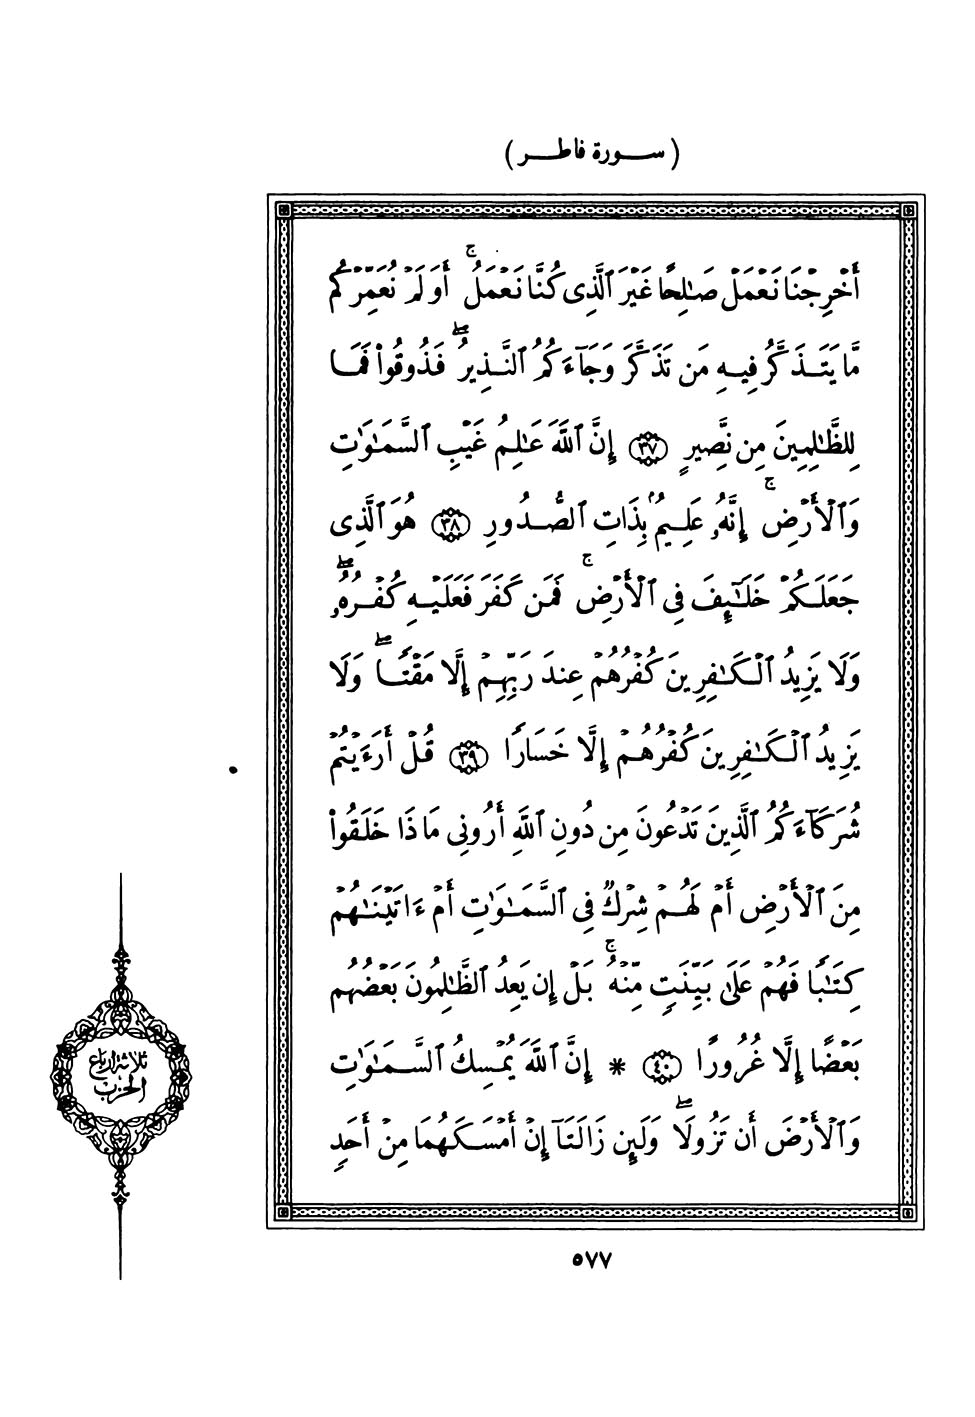 (سورة فاطر)
أَخْرِجْنَا نَعْمَلْ صَٰلِحًا غَيْرَ ٱلَّذِى كُنَّا نَعْمَلُ ۚ أَوَلَمْ نُعَمِّرْكُم
مَّا يَتَذَكَّرُ فِيهِ مَن تَذَكَّرَ وَجَآءَكُمُ ٱلنَّذِيرُ ۖ فَذُوقُوا۟ فَمَا
لِلظَّٰلِمِينَ مِن نَّصِيرٍ ٣٧ إِنَّ ٱللَّهَ عَٰلِمُ غَيْبِ ٱلسَّمَٰوَٰتِ
وَٱلْأَرْضِ ۚ إِنَّهُۥ عَلِيمٌۢ بِذَاتِ ٱلصُّدُورِ ٣٨ هُوَ ٱلَّذِى
جَعَلَكُمْ خَلَٰٓئِفَ فِى ٱلْأَرْضِ ۚ فَمَن كَفَرَ فَعَلَيْهِ كُفْرُهُۥ ۖ
وَلَا يَزِيدُ ٱلْكَٰفِرِينَ كُفْرُهُمْ عِندَ رَبِّهِمْ إِلَّا مَقْتًا ۖ وَلَا
يَزِيدُ ٱلْكَٰفِرِينَ كُفْرُهُمْ إِلَّا خَسَارًا ٣٩ قُلْ أَرَءَيْتُمْ
شُرَكَآءَكُمُ ٱلَّذِينَ تَدْعُونَ مِن دُونِ ٱللَّهِ أَرُونِى مَاذَا خَلَقُوا۟
مِنَ ٱلْأَرْضِ أَمْ لَهُمْ شِرْكٌ فِى ٱلسَّمَٰوَٰتِ أَمْ ءَاتَيْنَٰهُمْ
كِتَٰبًا فَهُمْ عَلَىٰ بَيِّنَتٍ مِّنْهُ ۚ بَلْ إِن يَعِدُ ٱلظَّٰلِمُونَ بَعْضُهُم
بَعْضًا إِلَّا غُرُورًا ٤٠ * إِنَّ ٱللَّهَ يُمْسِكُ ٱلسَّمَٰوَٰتِ
وَٱلْأَرْضَ أَن تَزُولَا ۖ وَلَئِن زَالَتَآ إِنْ أَمْسَكَهُمَا مِنْ أَحَدٍ
ثلاثة أرباع
الحزب
٥٧٧